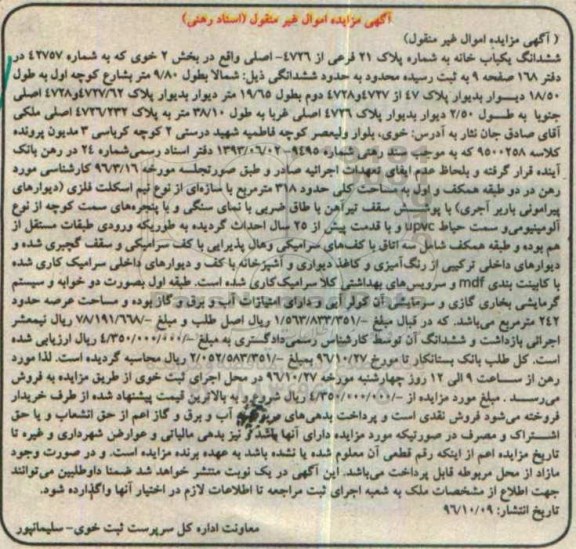 آگهی مزایده اموال غیر منقول (اسناد رهنی)
( آگهی مزایده اموال غیر منقول)
ششدانگ یکباب خانه به شماره پلاک ۲۱ فرعی از ۴۷۲۶- اصلی واقع در بخش ۲ خوی که به شماره ۴۲۷۵۷ در
دفتر ۱۶۸ صفحه ۹ به ثبت رسیده محدود به حدود ششدانگی ذیل: شمالا بطول ۹/۸۰ متر بشارع کوچه اول به طول
۱۸/۵۰ دیوار بدیوار پلاک ۴۷ از ۴۷۲۷و۴۷۲۸ دوم بطول ۱۹/۶۵ متر دیوار بدیوار پلاک ۴۷۲۷/۶۲و۴۷۲۸ اصلی
جنوبا به طول ۲/۵۰ دیوار بدیوار پلاک ۴۷۲۶ اصلی غربا به طول ۳۸/۱۰ متر به پلاک ۴۷۲۶/۲۳۲ اصلی ملکی
آقای صادق جان نثار به آدرس: خوی، بلوار ولیعصر کوچه فاطمیه شهید درستی ۲ کوچه کرباسی ۳ مدیون پرونده
کلاسه ۹۵۰۰۲۵۸ که به موجب سند رهنی شماره ۹۴۹۵- ۱۳۹۳/۰۶/۰۲ دفتر اسناد رسمی شماره ۲۴ در رهن بانک
آینده قرار گرفته و بلحاظ عدم ایفای تعهدات اجرائیه صادر و طبق صورتجلسه مورخه ۹۶/۳/۱۶ کارشناسی مورد
رهن در دو طبقه همکف و اول به مساحت کلی حدود ۳۱۸ مترمربع با سازه‌ای از نوع نیم اسکلت فلزی (دیوارهای
پیرامونی باربر آجری) با پوشش سقف تیرآهن با طاق ضربی با نمای سنگی و با پنجره‌های سمت کوچه از نوع
آلومینیومی و سمت حیاط upvc و با قدمت بیش از ۲۵ سال احداث گردیده به طوریکه ورودی طبقات مستقل از
هم بوده و طبقه همکف شامل سه اتاق با کف‌های سرامیکی وهال پذیرایی با کف سرامیکی و سقف گچبری شده و
دیوارهای داخلی ترکیبی از رنگ‌آمیزی و کاغذ دیواری و آشپزخانه با کف و دیوارهای داخلی سرامیک کاری شده
با کابینت بندی mdf و سرویس‌های بهداشتی کلا سرامیک‌کاری شده است. طبقه اول بصورت دو خوابه و سیستم
گرمایشی بخاری گازی و سرمایشی آن کولر آبی و دارای امتیازات آب و برق و گاز بوده و مساحت عرصه حدود
۲۴۲ مترمربع می‌باشد. که در قبال مبلغ -/۱/۵۶۳/۸۳۳/۳۵۱ ریال اصل طلب و مبلغ -/۷۸/۱۹۱/۶۶۸ ریال نیمعشر
اجرائی بازداشت و ششدانگ آن توسط کارشناس رسمی‌دادگستری به مبلغ -/۴/۳۵۰/۰۰۰/۰۰۰ ریال ارزیابی شده
است. کل طلب بانک بستانکار تا مورخ ۹۶/۱۰/۲۷ بمبلغ -/۲/۰۵۲/۵۸۳/۳۵۱ ریال محاسبه گردیده است. لذا مورد
رهن از ساعت ۹ الی ۱۲ روز چهارشنبه مورخه ۹۶/۱۰/۲۷ در محل اجرای ثبت خوی از طریق مزایده به فروش
می‌رسد. مبلغ مورد مزایده از -/۴/۳۵۰/۰۰۰/۰۰۰ ریال شروع و به بالاترین قیمت پیشنهاد شده از طرف خریدار
فروخته می‌شود فروش نقدی است و پرداخت بدهی‌های مربوط به آب و برق و گاز اعم از حق انشعاب و یا حق
اشتراک و مصرف در صورتیکه مورد مزایده دارای آنها باشد و نیز بدهی مالیاتی و عوارض شهرداری و غیره تا
تاریخ مزایده اعم از اینکه رقم قطعی آن معلوم شده یا نشده باشد به عهده برنده مزایده است. و در صورت وجود
مازاد از محل مربوطه قابل پرداخت می‌باشد. این آگهی در یک نوبت منتشر خواهد شد ضمنا داوطلبین می‌توانند
جهت اطلاع از مشخصات ملک به شعبه اجرای ثبت مراجعه تا اطلاعات لازم در اختیار آنها واگذارده شود.
تاریخ انتشار: ۹۶/۱۰/۰۹
معاونت اداره کل سرپرست ثبت خوی- سلیمانپور